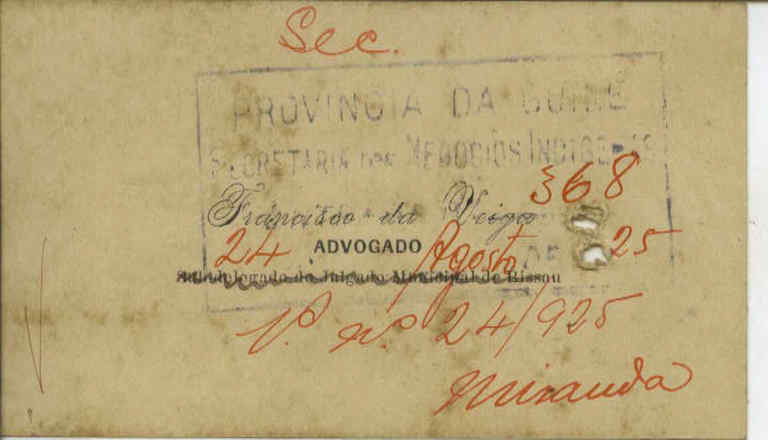 Sec.
PROVINCIA DA GUINÉ
SECRETARIA DOS NEGOCIOS INDIGENAS
368
Francisco da Veiga
24 Agosto DE 25
ADVOGADO
Subdelegado do Julgado Municipal de Bissau
P. nº 24/925
Miranda